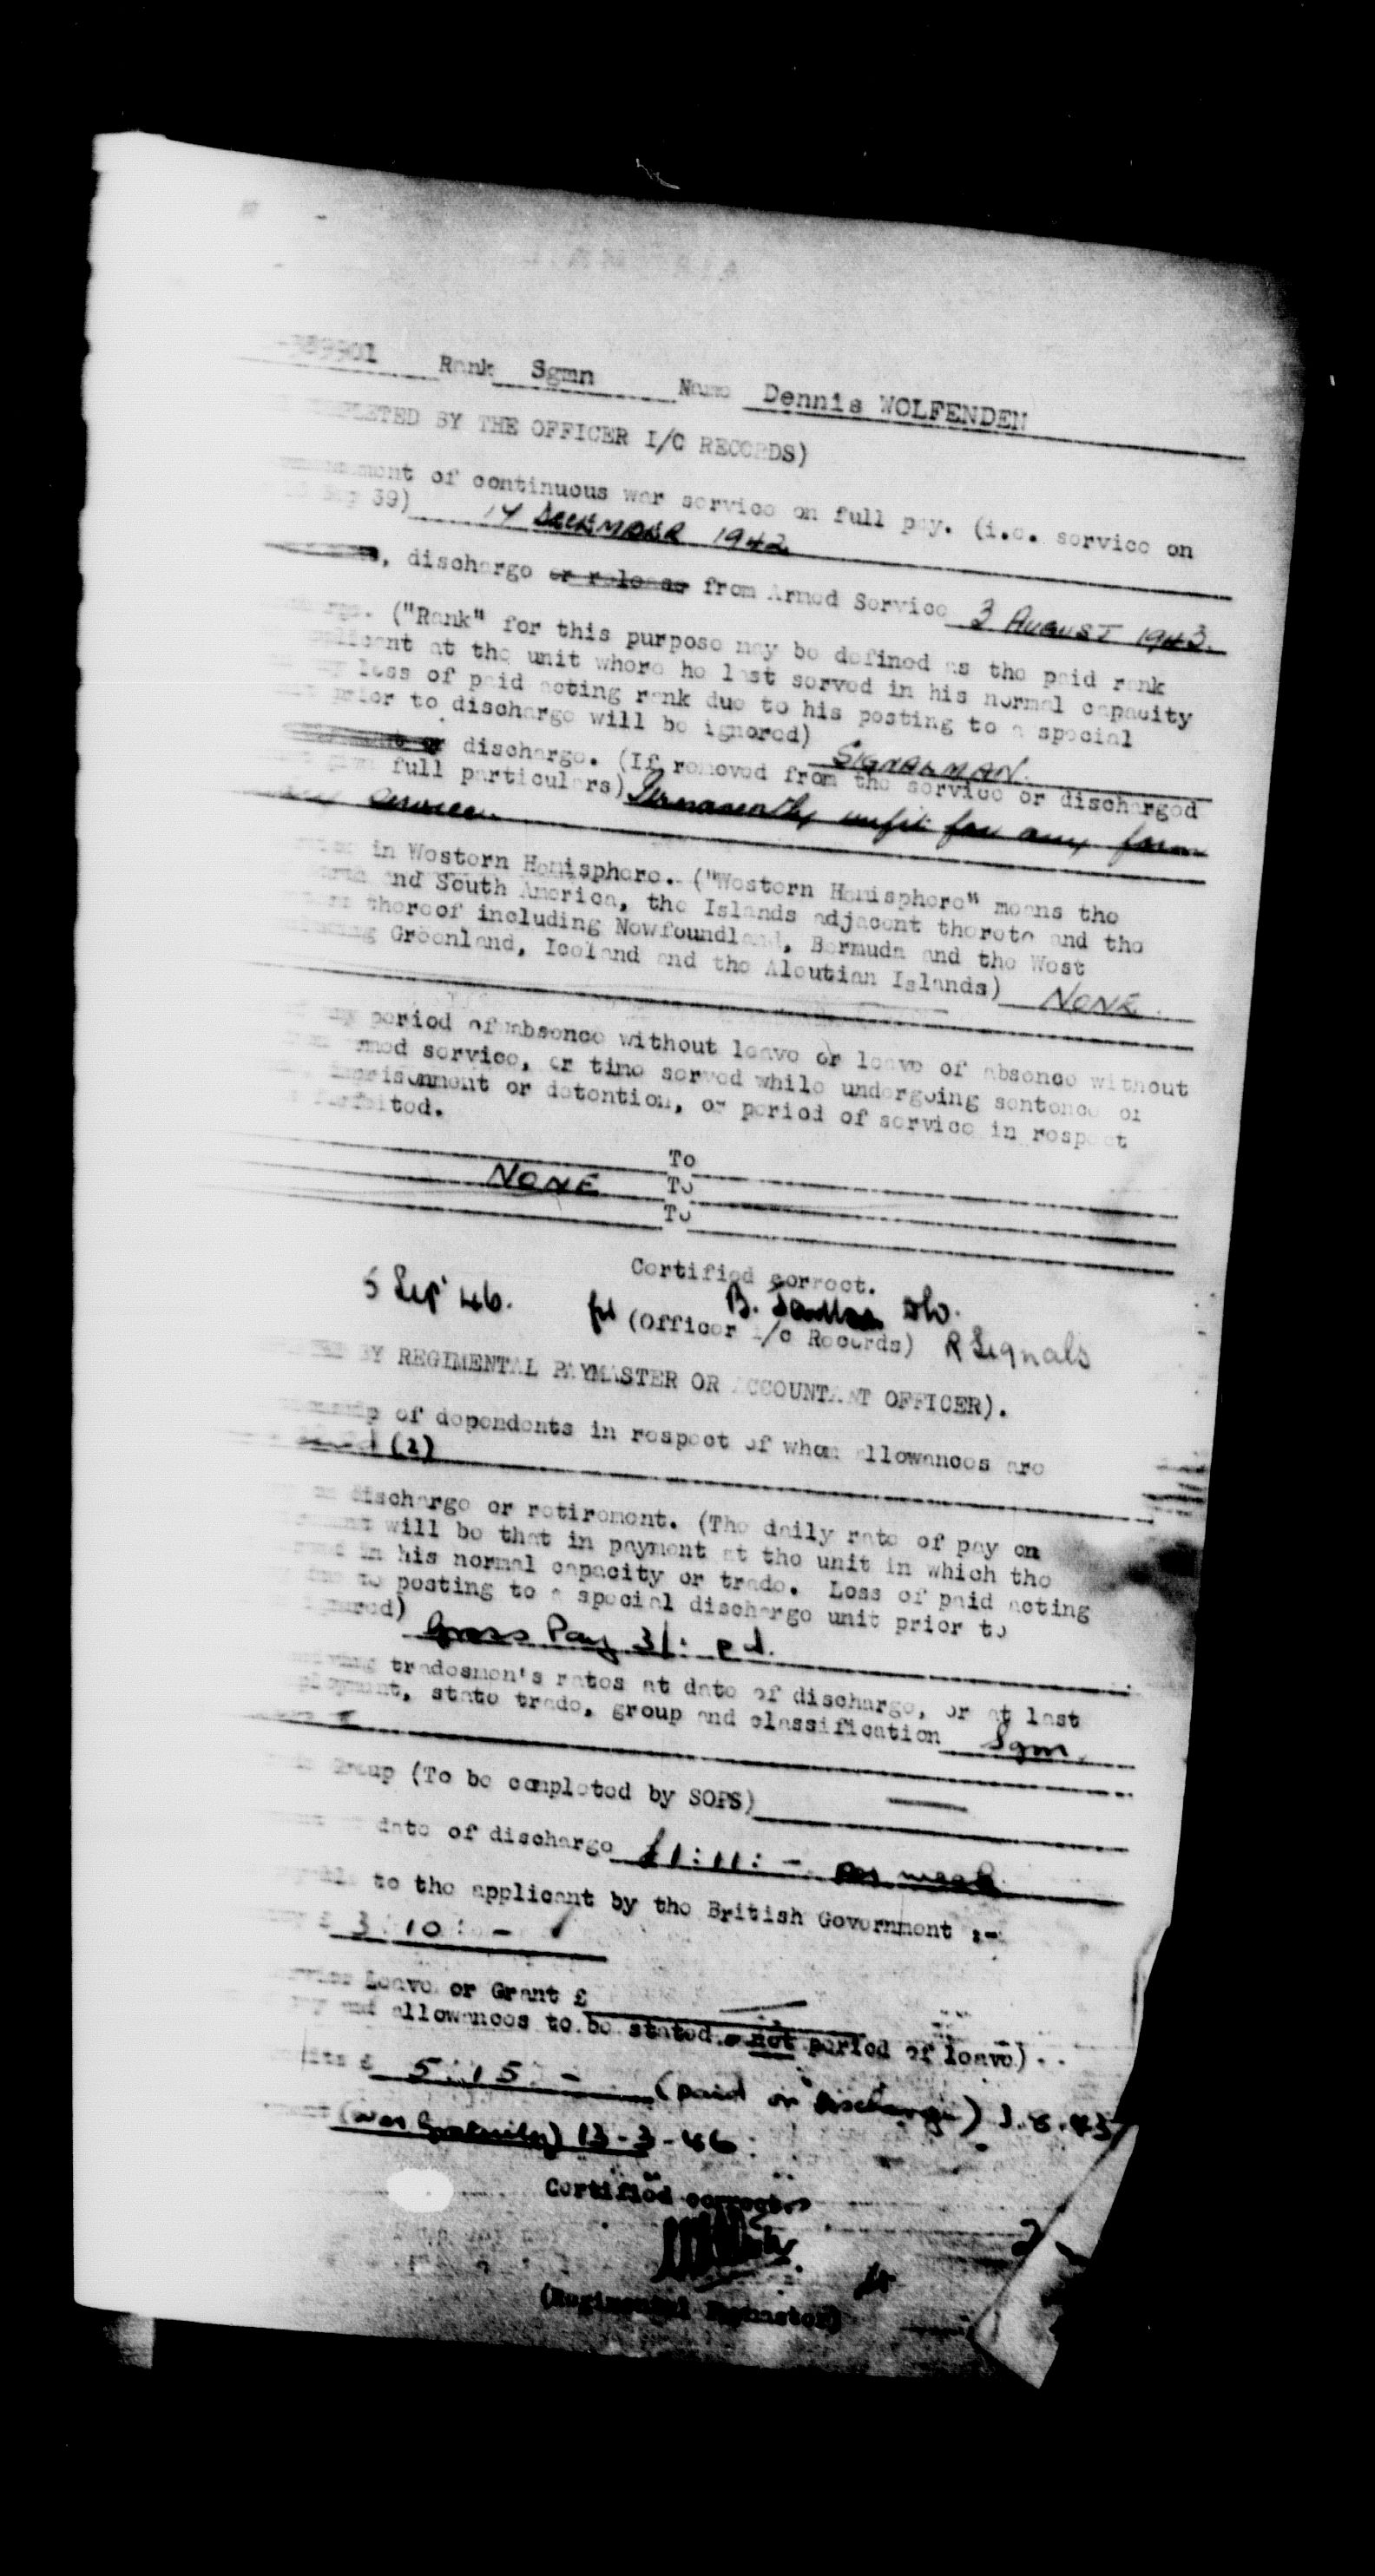 389901 Rank Sgmn Name Dennis WOLFENDEN
BY THE OFFICER I/C RECORDS)
of continuous war service on full pay. (i.e. service on
39) 17 DECEMBER 1942
, discharge or release from Armed Service 3 AUGUST 1943.
("Rank" for this purpose may be defined as the paid rank
at the unit where he last served in his normal capacity
loss of paid acting rank due to his posting to a special
prior to discharge will be ignored) SIGNALMAN.
discharge. (If removed from the service or discharged
full particulars) Permanently unfit for any form
service.
in Western Hemisphere. ("Western Hemisphere" means the
and South America, the Islands adjacent thereto and the
thereof including Newfoundland, Bermuda and the West
Greenland, Iceland and the Aleutian Islands) NONE.
period of absence without leave or leave of absence without
service, or time served while undergoing sentence of
imprisonment or detention, or period of service in respect
To
NONE To
To
Certified correct.
5 Sep' 46. for B.
(Officer i/c Records) R Signals
BY REGIMENTAL PAYMASTER OR ACCOUNTANT OFFICER).
of dependents in respect of whom allowances are
(2)
discharge or retirement. (The daily rate of pay on
will be that in payment at the unit in which the
in his normal capacity or trade. Loss of paid acting
posting to a special discharge unit prior to
Gross Pay 3/: p d.
tradesmen's rates at date of discharge, or at last
state trade, group and classification Sgm.
Group (To be completed by SOPS) —
date of discharge £1:11:- per week
to the applicant by the British Government :-
£ 3:10:-
Leave or Grant £ —
and allowances to be stated - not period of leave)..
£ 5:15:- (paid on discharge) 3.8.43
(War Gratuity) 13-3-46
Certified correct.
(Regimental Paymaster)